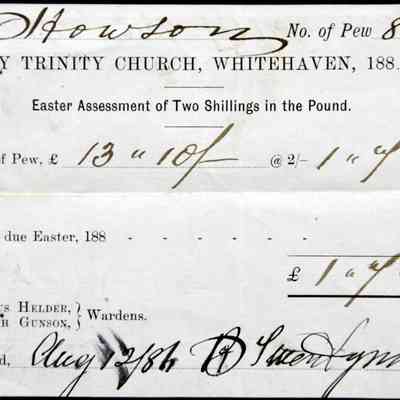 Howson No. of Pew 8
Y TRINITY CHURCH, WHITEHAVEN, 188
Easter Assessment of Two Shillings in the Pound.
of Pew, £ 13 " 10/ @ 2/- 1 " 7
due Easter, 188 - - - - -
£ 1 " 7
S HELDER,
H GUNSON, } Wardens.
d, Aug 12/86